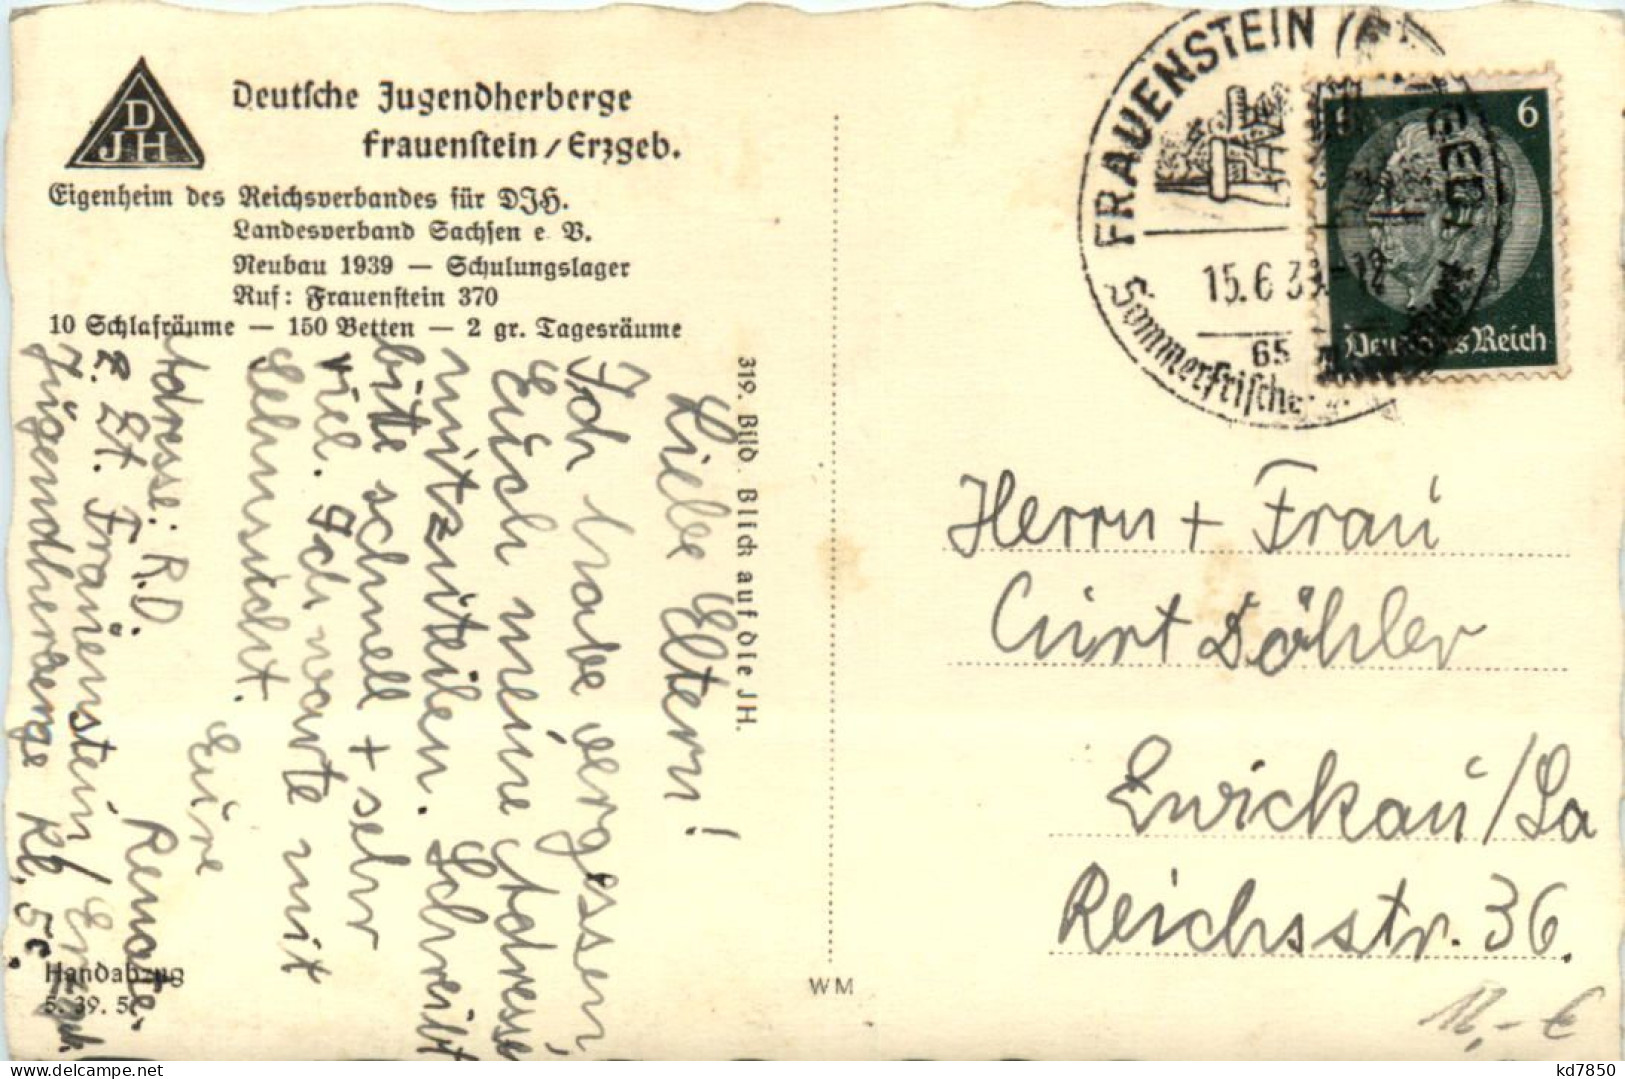 DJH
Deutsche Jugendherberge
Frauenstein / Erzgeb.
Eigenheim des Reichsverbandes für DJH.
Landesverband Sachsen e. V.
Neubau 1939 — Schulungslager
Ruf: Frauenstein 370
10 Schlafräume — 150 Betten — 2 gr. Tagesräume
319. Bild. Blick auf die JH.
Liebe Eltern!
Ich habe vergessen
Euch meine Adresse
mitzuteilen. Schreibt
bitte schnell + sehr
viel. Ich warte mit
Sehnsucht.
Eure
Renate.
Adresse: R.D.
z. Zt. Frauenstein/Erzgeb.
Jugendherberge Kl. 5c.
Handabzug
5. 39. 5
WM
FRAUENSTEIN
15.6.39.-12
65
Sommerfrische
6
Deutsches Reich
Herrn + Frau
Curt Döhler
Zwickau/Sa
Reichsstr. 36.
12,- €
kd7850